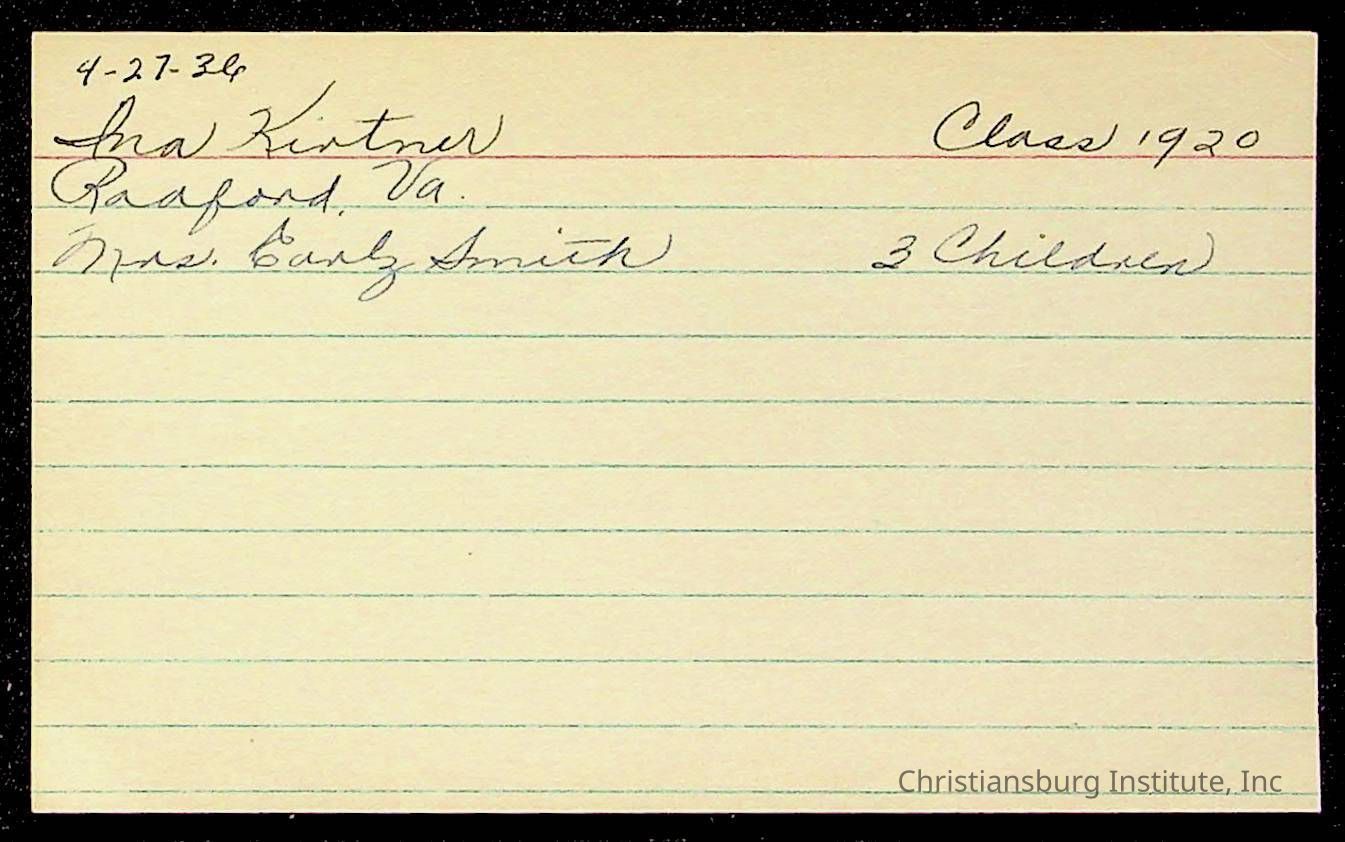 4-27-36
Ina Kirtner Class 1920
Radford, Va.
Mrs. Early Smith 3 Children
Christiansburg Institute, Inc